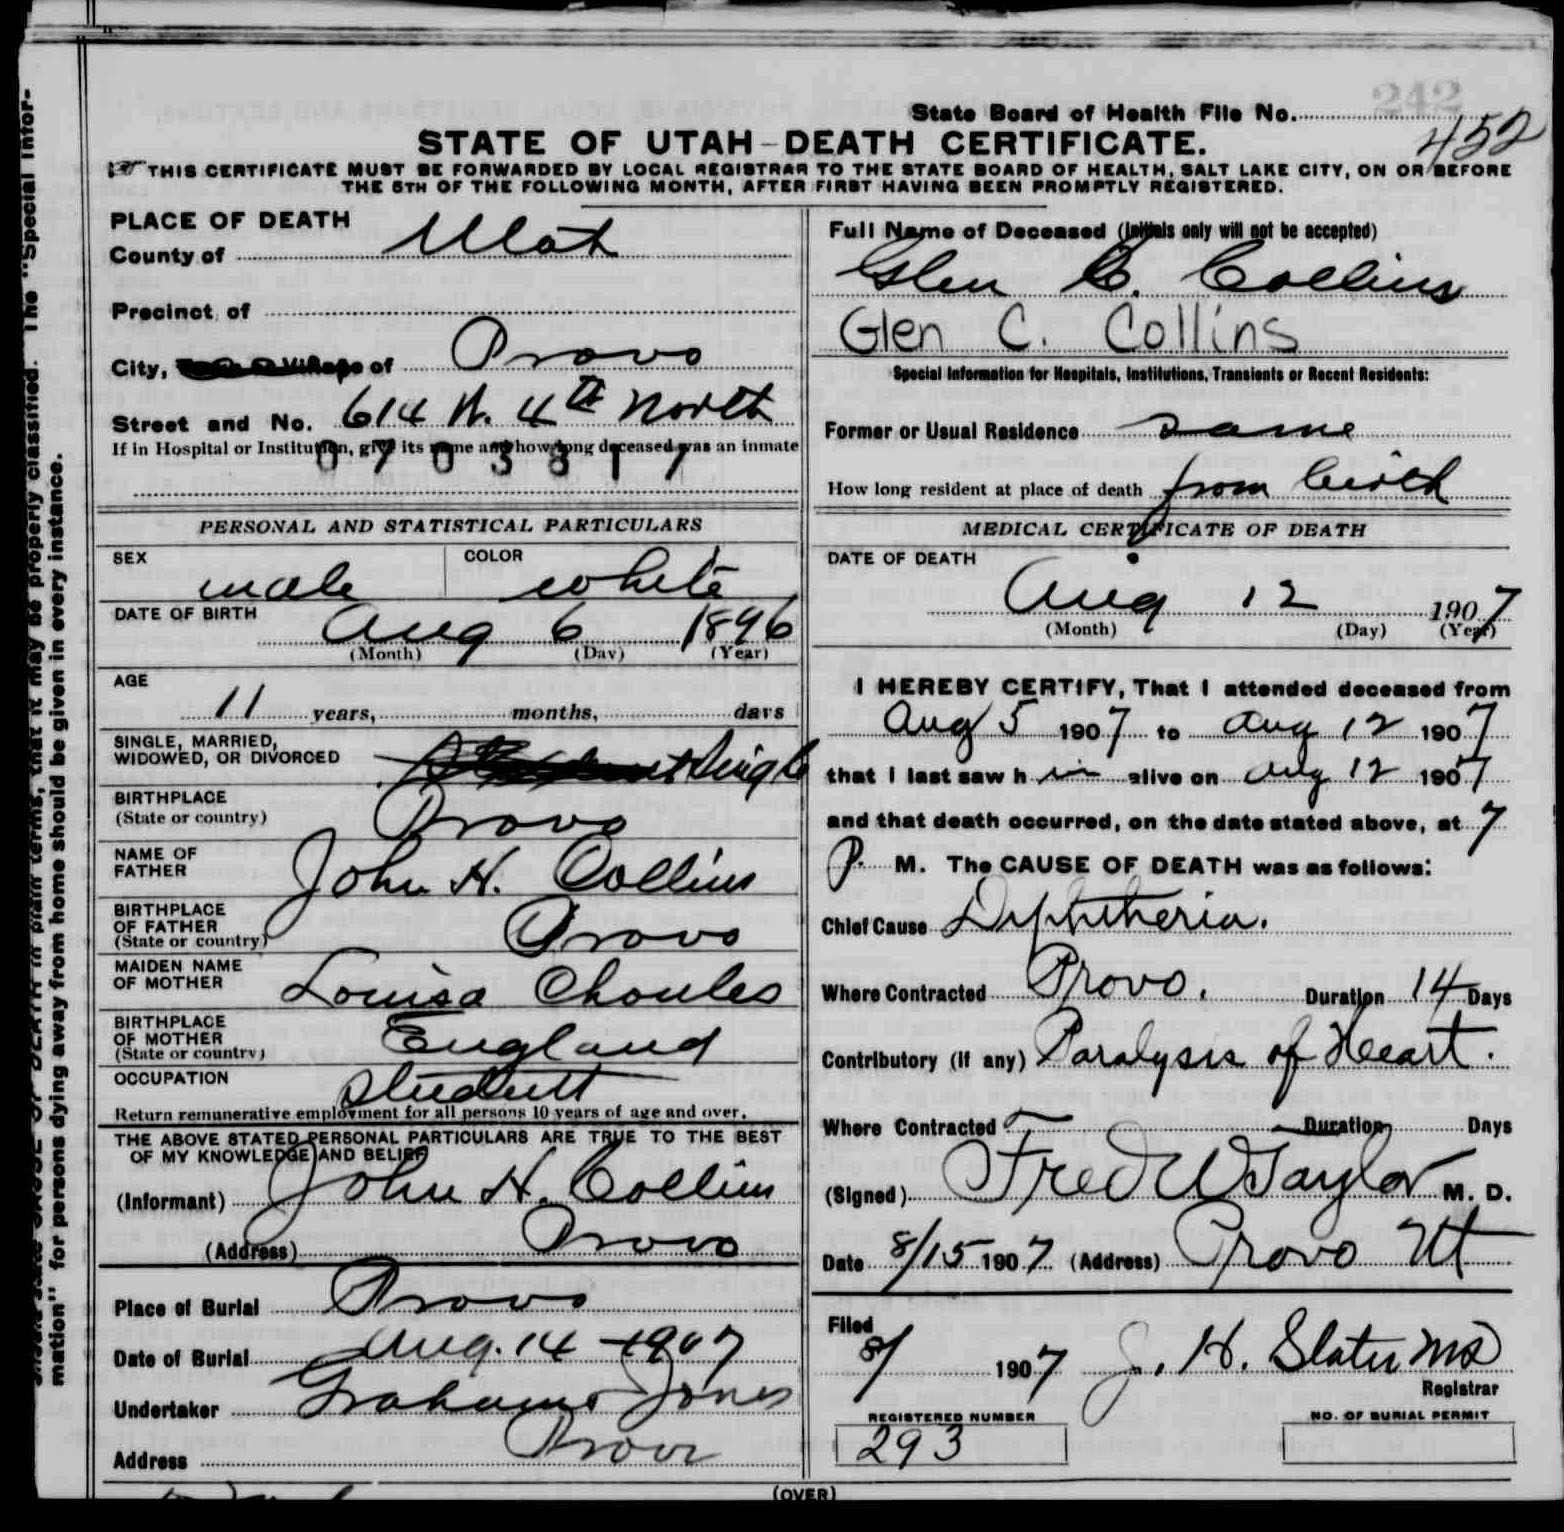 242
State Board of Health File No.
452
STATE OF UTAH—DEATH CERTIFICATE.
THIS CERTIFICATE MUST BE FORWARDED BY LOCAL REGISTRAR TO THE STATE BOARD OF HEALTH, SALT LAKE CITY, ON OR BEFORE
THE 5TH OF THE FOLLOWING MONTH, AFTER FIRST HAVING BEEN PROMPTLY REGISTERED.
PLACE OF DEATH
County of Utah
Precinct of
City, Village of Provo
Street and No. 614 W. 4th North
If in Hospital or Institution, give its name and how long deceased was an inmate
0703817
PERSONAL AND STATISTICAL PARTICULARS
SEX male COLOR white
DATE OF BIRTH Aug 6 1896
(Month) (Day) (Year)
AGE
11 years, months, days
SINGLE, MARRIED,
WIDOWED, OR DIVORCED Single
BIRTHPLACE
(State or country) Provo
NAME OF
FATHER John H. Collins
BIRTHPLACE
OF FATHER
(State or country) Provo
MAIDEN NAME
OF MOTHER Louisa Choules
BIRTHPLACE
OF MOTHER
(State or country) England
OCCUPATION Student
Return remunerative employment for all persons 10 years of age and over.
THE ABOVE STATED PERSONAL PARTICULARS ARE TRUE TO THE BEST
OF MY KNOWLEDGE AND BELIEF
(Informant) John H. Collins
(Address) Provo
Place of Burial Provo
Date of Burial Aug. 14 - 1907
Undertaker Graham Jones
Address Provo
Full Name of Deceased (Initials only will not be accepted)
Glen C. Collins
Glen C. Collins
Special Information for Hospitals, Institutions, Transients or Recent Residents:
Former or Usual Residence same
How long resident at place of death from birth
MEDICAL CERTIFICATE OF DEATH
DATE OF DEATH
Aug 12 1907
(Month) (Day) (Year)
I HEREBY CERTIFY, That I attended deceased from
Aug 5 1907 to Aug 12 1907
that I last saw h im alive on Aug 12 1907
and that death occurred, on the date stated above, at 7
P. M. The CAUSE OF DEATH was as follows:
Chief Cause Diphtheria.
Where Contracted Provo. Duration 14 Days
Contributory (if any) Paralysis of Heart.
Where Contracted Duration Days
(Signed) Fred W Taylor M. D.
Date 8/15 1907 (Address) Provo Ut
Filed
8/ 1907 J. H. Slater MD
Registrar
REGISTERED NUMBER
293
NO. OF BURIAL PERMIT
(OVER)
should state CAUSE OF DEATH in plain terms, that it may be properly classified. The "Special Infor-
mation" for persons dying away from home should be given in every instance.